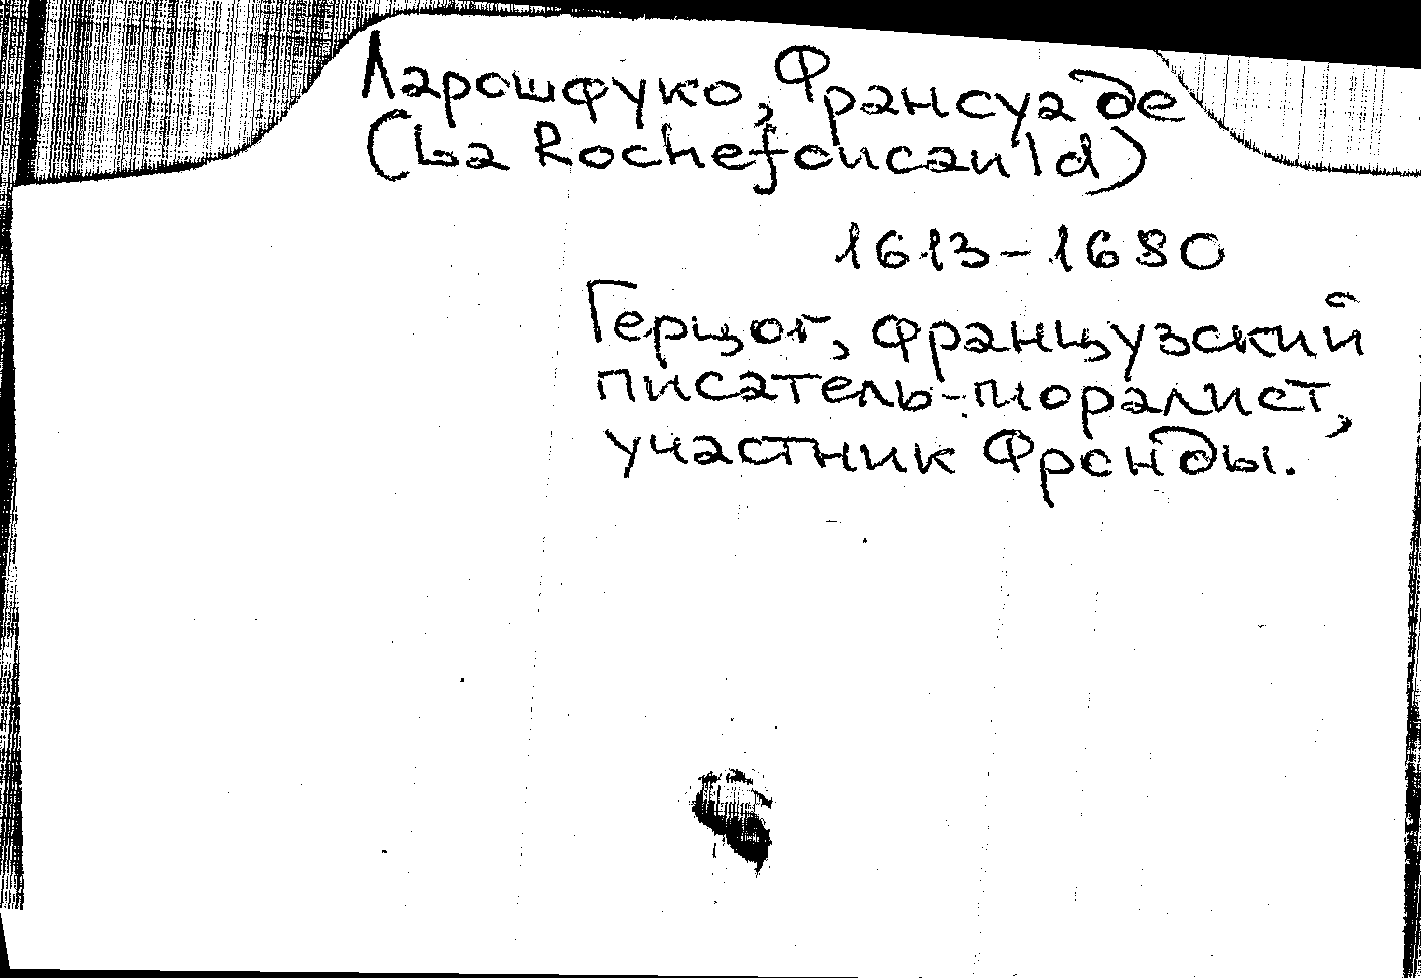 Ларошфуко, Франсуа де
(La Rochefoucauld)
1613-1680
Герцог, французский
писатель-моралист,
участник Фронды.